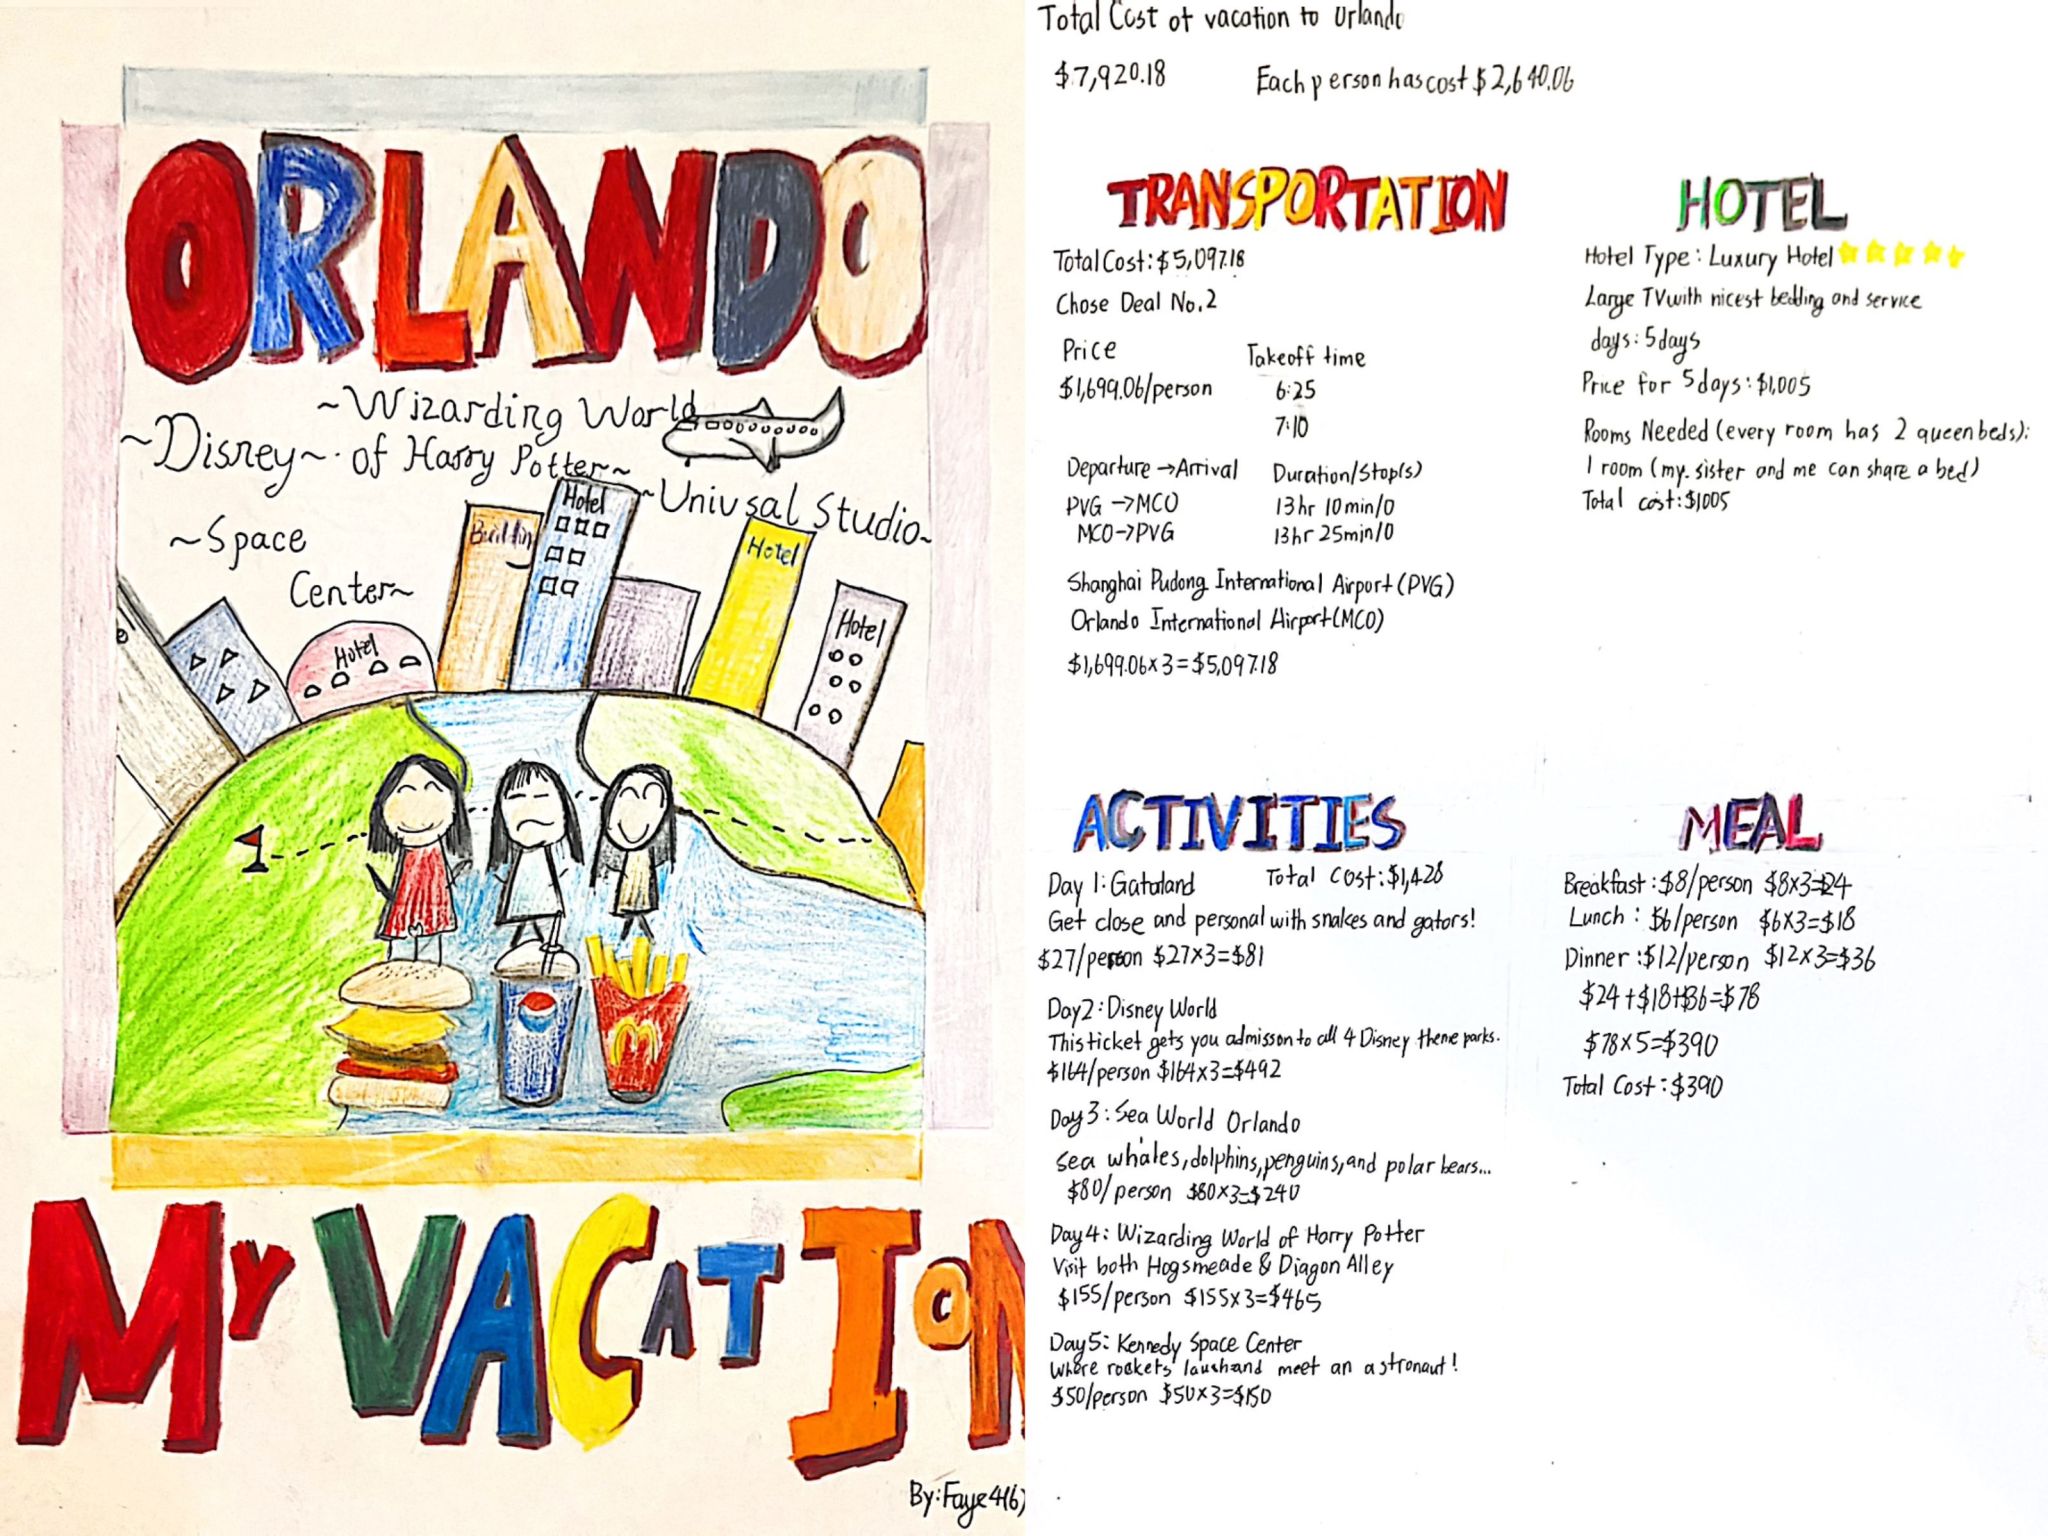 ORLANDO
~Wizarding World
~Disney~ of Harry Potter~
~Univsal Studio~
~Space
Center~
Building
Hotel
Hotel
Hotel
Hotel
M
MY VACATION
By:Faye4(6)
Total Cost of vacation to Orlando
$7,920.18 Each person has cost $2,640.06
TRANSPORTATION
Total Cost: $5,097.18
Chose Deal No.2
Price Takeoff time
$1,699.06/person 6:25
7:10
Departure →Arrival Duration/Stop(s)
PVG →MCO 13hr 10min/0
MCO→PVG 13hr 25min/0
Shanghai Pudong International Airport (PVG)
Orlando International Airport(MCO)
$1,699.06×3=$5,097.18
HOTEL
Hotel Type: Luxury Hotel
Large TV with nicest bedding and service
days: 5days
Price for 5days: $1,005
Rooms Needed (every room has 2 queen beds):
1 room (my sister and me can share a bed)
Total cost: $1005
ACTIVITIES
Day 1: Gatorland Total cost: $1,428
Get close and personal with snakes and gators!
$27/person $27×3=$81
Day2: Disney World
This ticket gets you admisson to all 4 Disney theme parks.
$164/person $164×3=$492
Day3: Sea World Orlando
sea whales, dolphins, penguins, and polar bears...
$80/person $80×3=$240
Day4: Wizarding World of Harry Potter
Visit both Hogsmeade & Diagon Alley
$155/person $155×3=$465
Day5: Kennedy Space Center
Where rockets meet an astronaut!
$50/person $50×3=$150
MEAL
Breakfast: $8/person $8×3=$24
Lunch: $6/person $6×3=$18
Dinner: $12/person $12×3=$36
$24+$18+$36=$78
$78×5=$390
Total Cost: $390